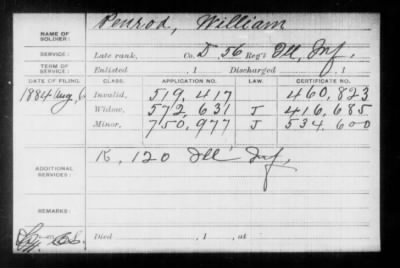 Penrod, William
NAME OF SOLDIER:
SERVICE: Late rank, Co. D, 56 Reg't Ill, Inf,
TERM OF SERVICE: Enlisted , 1 Discharged , 1
DATE OF FILING. CLASS. APPLICATION NO. LAW. CERTIFICATE NO.
1884 Aug, 6 Invalid, 519,417 460,823
Widow, 572,631 J 416,685
Minor, 750,977 J 534,600
ADDITIONAL SERVICES: K, 120 Ill Inf,
REMARKS:
Died , 1 , at